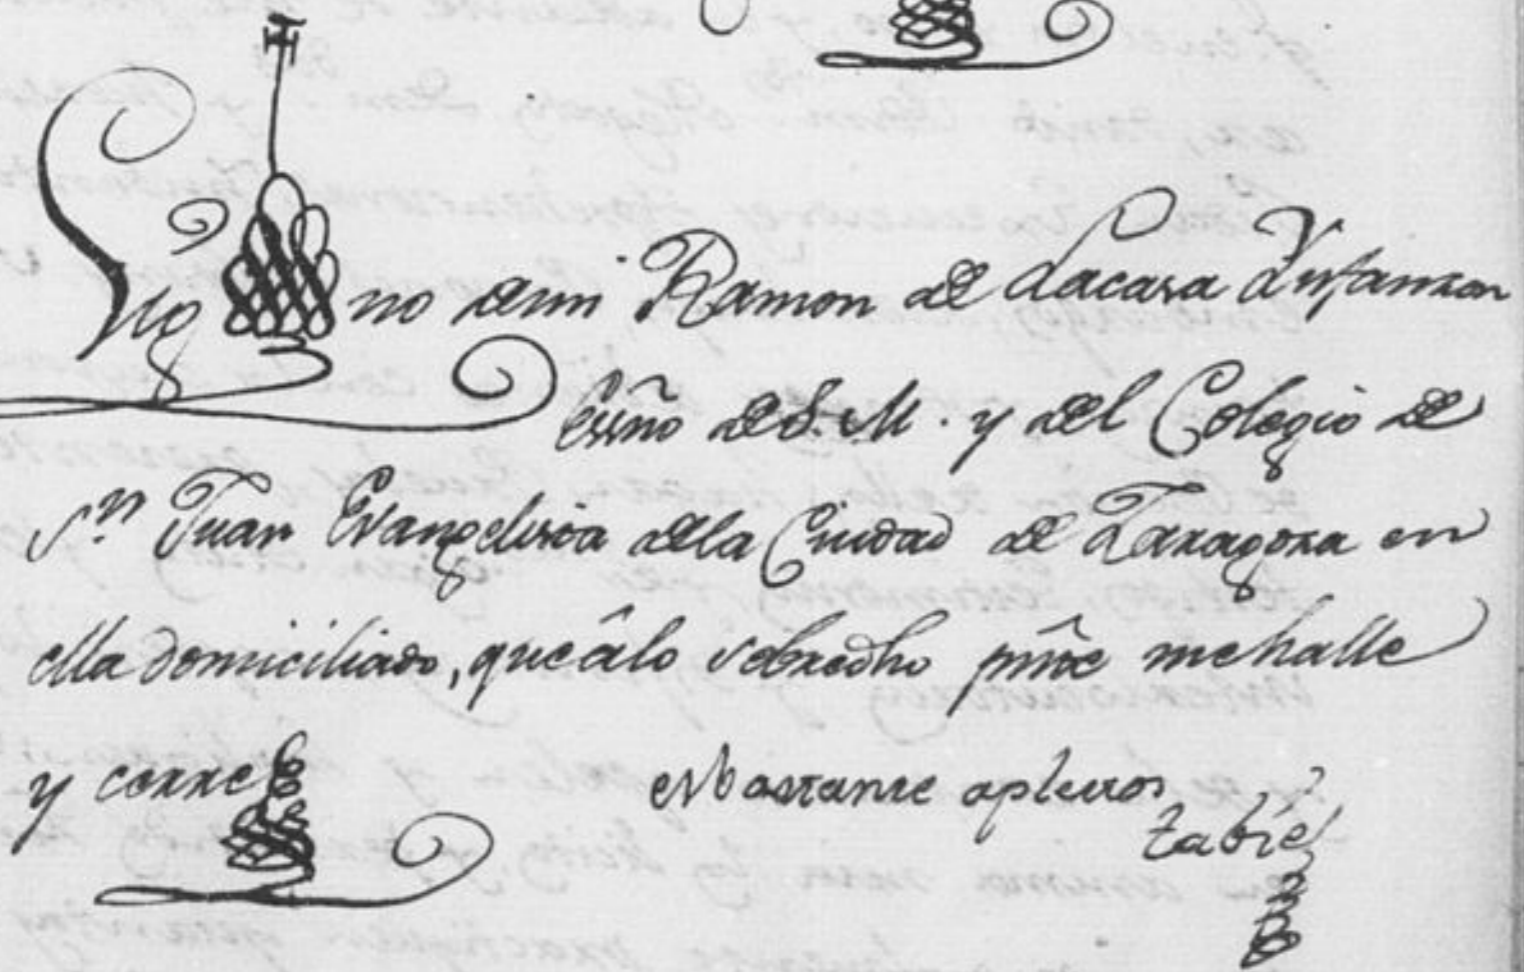 Sig no de mi Ramon de Lacasa Infanzon
Essño de S. M. y del Colegio de
Sn. Juan Evangelista dela Ciudad de Zaragoza en
ella domiciliado, que âlo sobredho pñte me halle
y cerre
Bastante apleitos